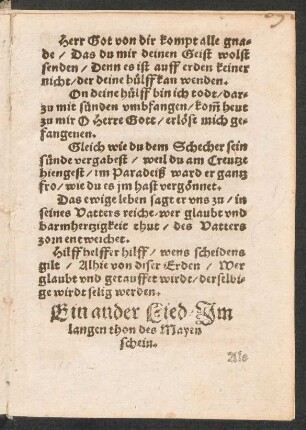 Herr Got von dir kompt alle gna-
de / Das du mir deinen Geist wolst
senden / Denn es ist auff erden keiner
nicht / der deine hülff kan wenden.
On deine hülff bin ich todt / dar-
zu mit sünden vmbfangen / kom̃ heut
zu mir O Herre Gott / erlöse mich ge-
fangenen.
Gleich wie du dem Schecher sein
sünde vergabest / weil du am Creutze
hiengest / im Paradeiß ward er gantz
fro / wie du es jm hast vergönnet.
Das ewige leben sagt er vns zu / in
seines Vatters reiche / wer glaubt vnd
barmhertzigkeit thut / des Vatters
zorn entweichet.
Hilff helffer hilff / wens scheidens
gilt / Alhie von diser Erden / Wer
glaubt vnd getauffet wirdt / derselbi-
ge wirdt selig werden.
Ein ander Lied / Im
langen thon des Mayen
schein.
Als